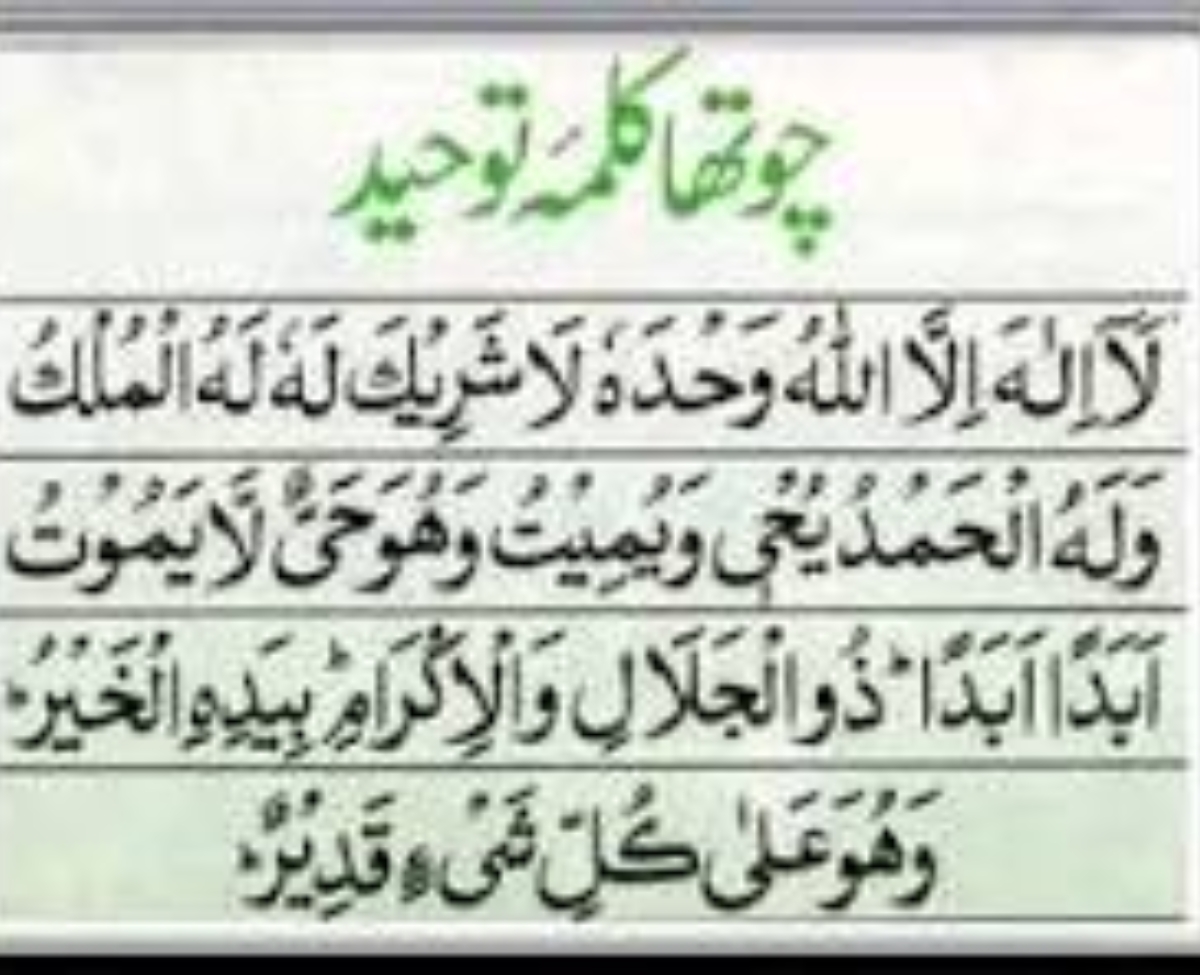 چوتھا کلمہ توحید
لَآ اِلٰهَ اِلَّا اللّٰهُ وَحْدَهٗ لَا شَرِيْكَ لَهٗ لَهُ الْمُلْكُ
وَلَهُ الْحَمْدُ يُحْیٖ وَيُمِيْتُ وَهُوَ حَیٌّ لَّا يَمُوْتُ
اَبَدًا اَبَدًا ؕ ذُو الْجَلَالِ وَالْاِكْرَامِ ؕ بِيَدِهِ الْخَيْرُ ؕ
وَهُوَ عَلٰی كُلِّ شَیْءٍ قَدِيْرٌ ؕ